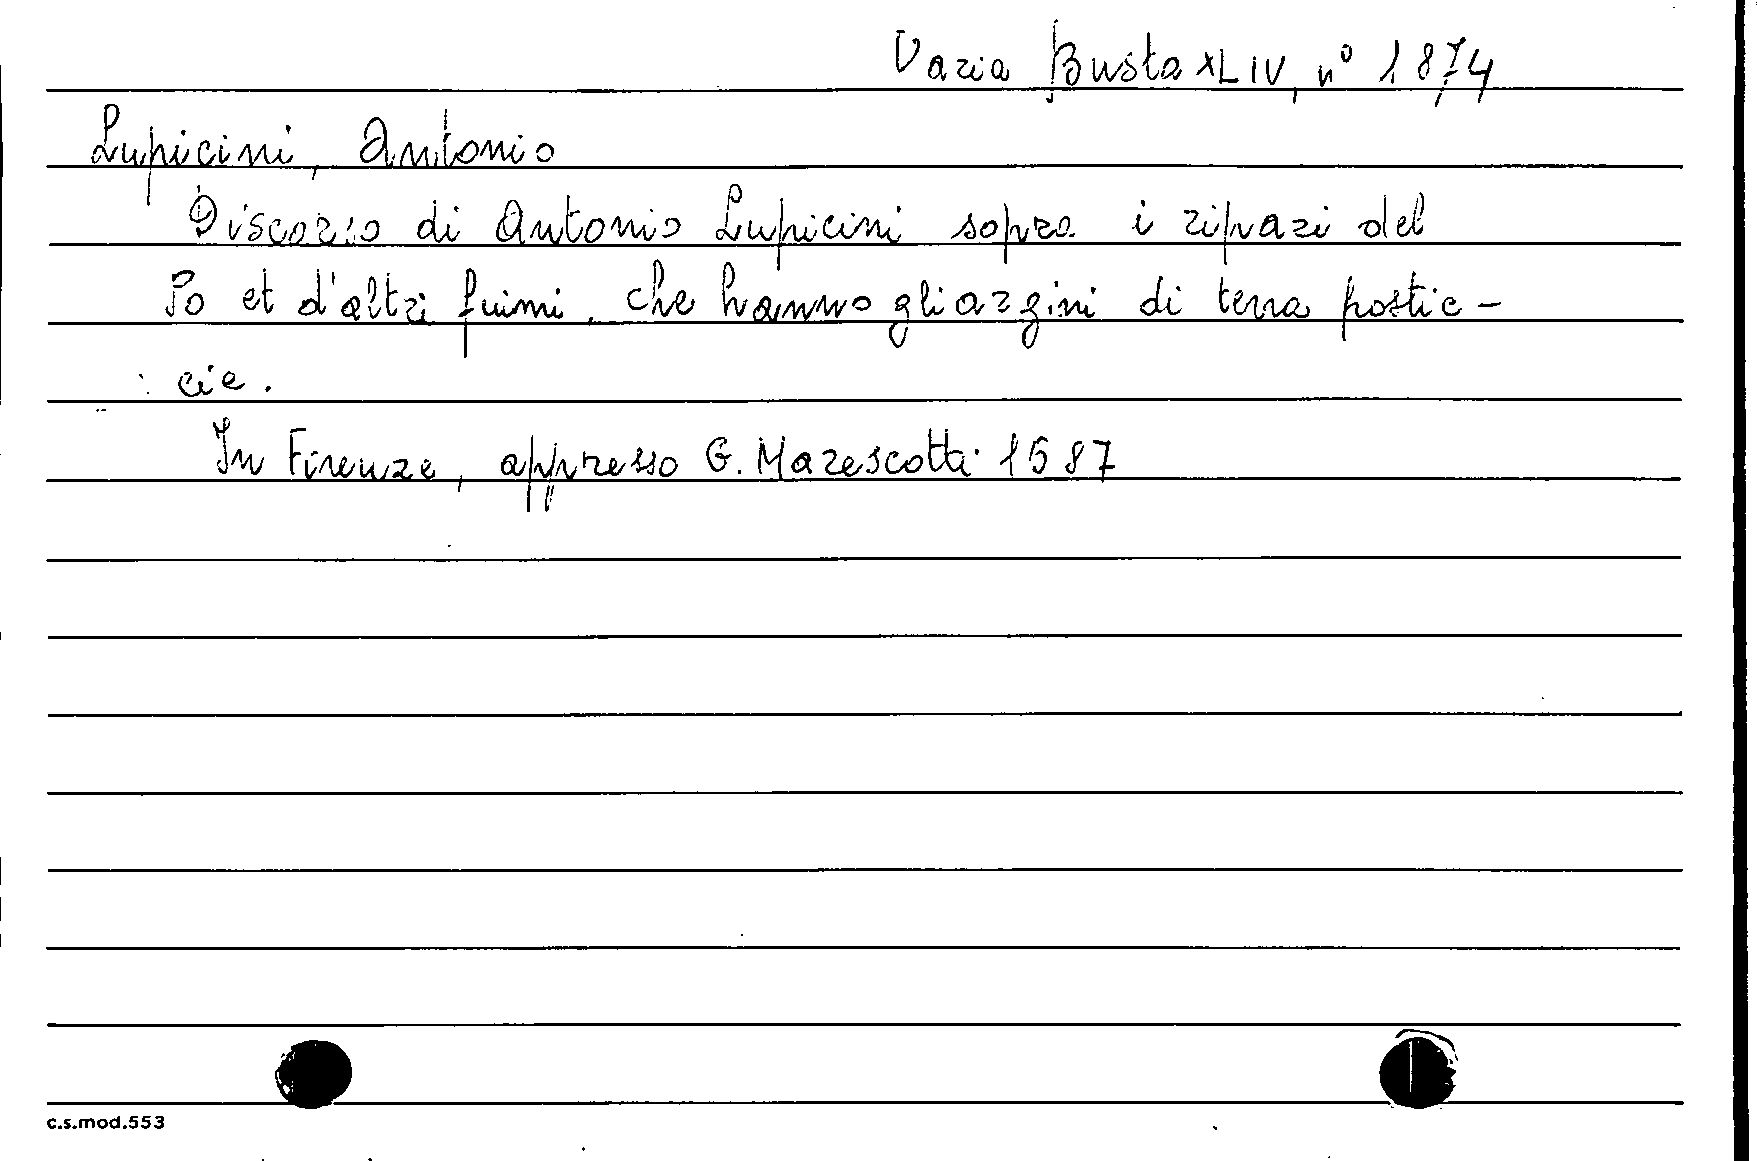 Varia Busta XLIV, n° 1874
Lupicini, Antonio
Discorso di Antonio Lupicini sopra i ripari del
Po et d'altri fiumi. che hanno gli argini di terra postic-
cie.
In Firenze, appresso G. Marescotti 1587
c.s.mod.553